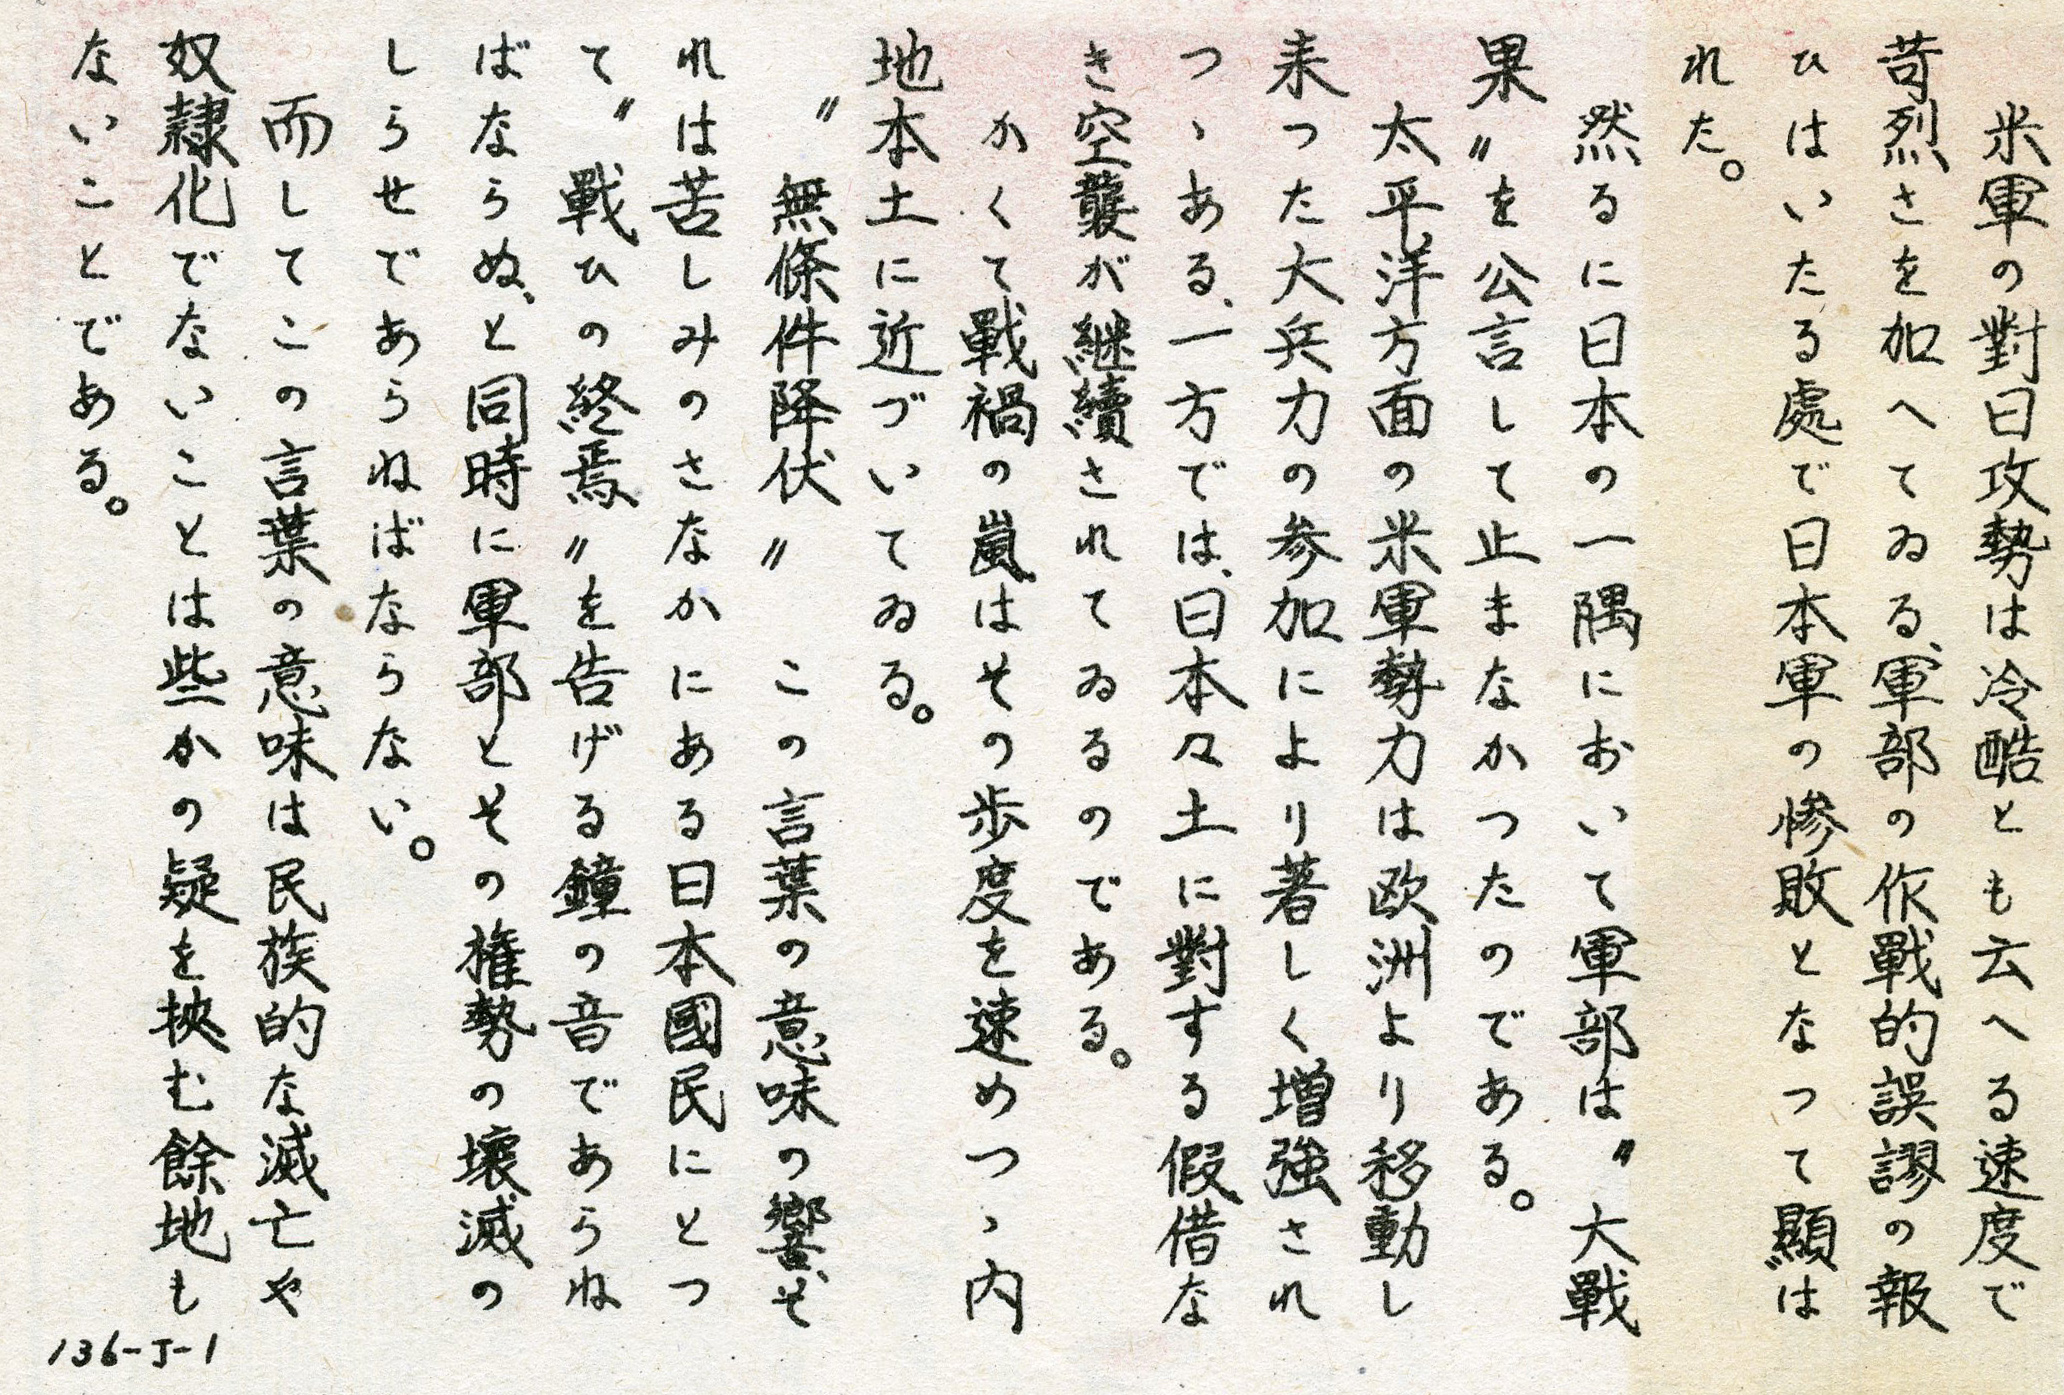 米軍の對日攻勢は冷酷とも云へる速度で
苛烈さを加へてゐる、軍部の作戰的誤謬の報
ひはいたる處で日本軍の惨敗となつて顯は
れた。
然るに日本の一隅において軍部は〝大戰
果〟を公言して止まなかつたのである。
太平洋方面の米軍勢力は欧洲より移動し
来つた大兵力の参加により著しく増強され
つゝある、一方では、日本々土に對する假借な
き空襲が継續されてゐるのである。
かくて戰禍の嵐はその歩度を速めつゝ内
地本土に近づいてゐる。
〝無條件降伏〟 この言葉の意味の響、そ
れは苦しみのさなかにある日本國民にとつ
て〝戰ひの終焉〟を告げる鐘の音であらね
ばならぬ、と同時に軍部とその権勢の壞滅の
しらせであらねばならない。
而してこの言葉の意味は民族的な滅亡や
奴隷化でないことは些かの疑を挾む餘地も
ないことである。
136-J-1